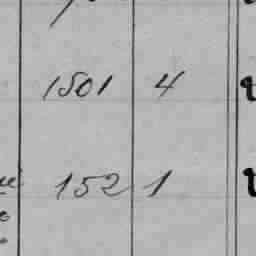 1501 4
152 1